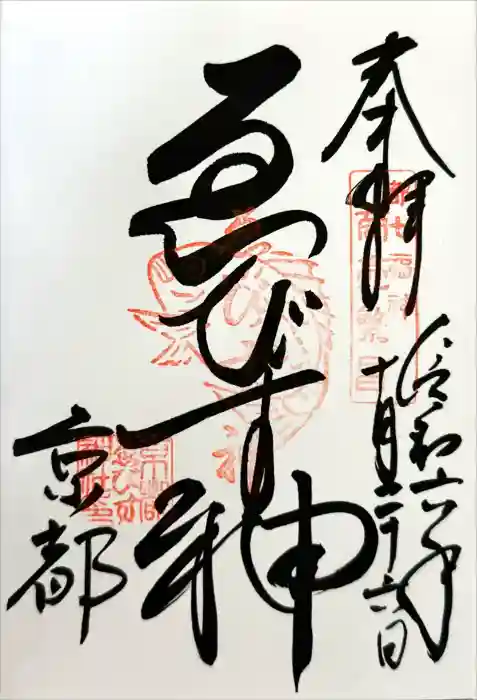 奉拝
令和六年
十月二十六日
ゑびす神
京都